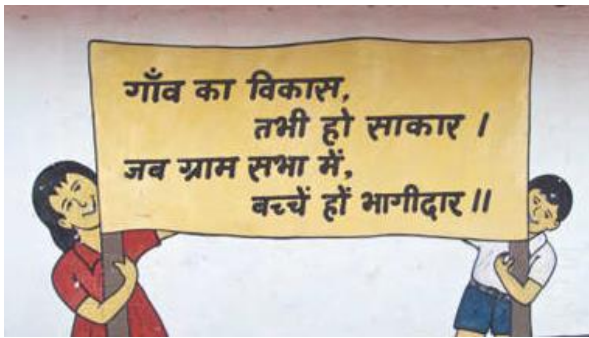 गाँव का विकास,
तभी हो साकार ।
जब ग्राम सभा में,
बच्चें हों भागीदार ॥